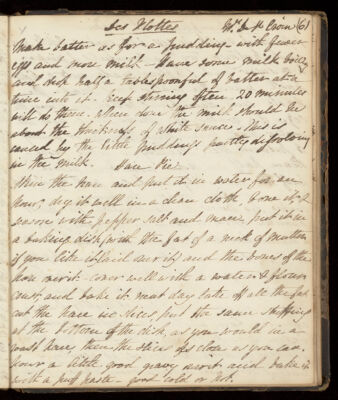 Les Flottes
make batter as for a pudding with fewer
eggs and more milk. Have some milk boiling
and drop half a tablespoonful of batter at a
time into it. Keep stirring often 20 minutes
will do them. when done the milk should be
about the thickness of white sauce. This is
caused by the little puddings partly dissolving
in the milk. Hare Pie.
Skin the hare and put it in water for an
hour, dry it well in a clean cloth bone it, &
season with pepper salt and mace, put it in
a baking dish, with the fat of a neck of mutton
if you like it (laid over it) and the bones of the
hare over it. cover well with a water & flour
crust, and bake it. next day take off all the fat
cut the hare in slices, put the same stuffing
at the bottom of the dish, as you would in a
roast hare, then the slices as close as you can,
pour a little good gravy over it and bake it
with a puff paste. good cold or hot.